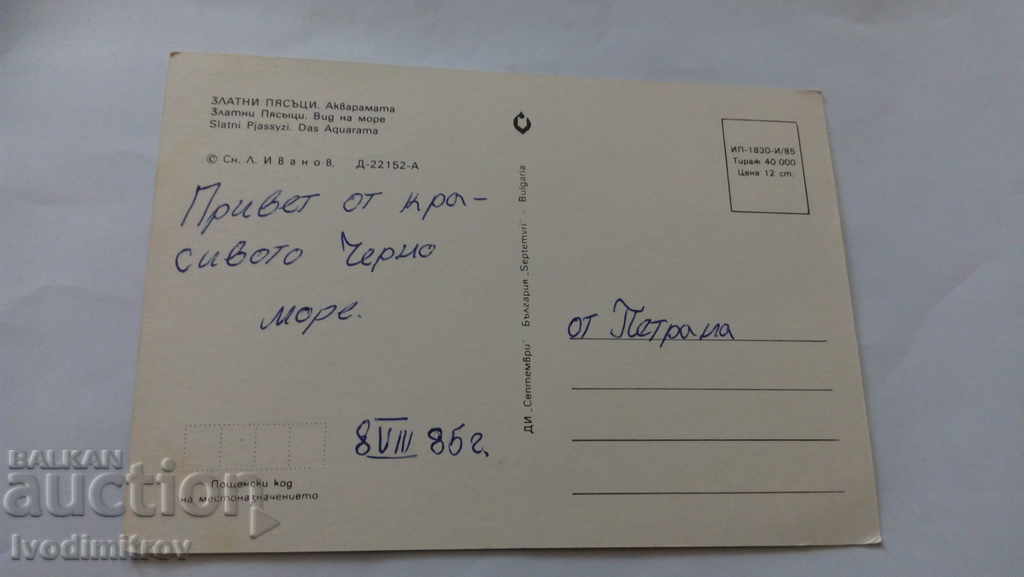 ЗЛАТНИ ПЯСЪЦИ. Акварамата
Златни Пясъци. Вид на море
Slatni Pjassyzi. Das Aquarama
© Сн. Л. Иванов, Д-22152-А
Привет от кра-
сивото Черно
море.
8 VIII 85 г.
Пощенски код
на местоназначението
ДИ „Септември" България „Septemvri" - Bulgaria
ИП-1830-И/85
Тираж 40 000
Цена 12 ст.
от Петрана
BALKAN
auction
Ivodimitrov